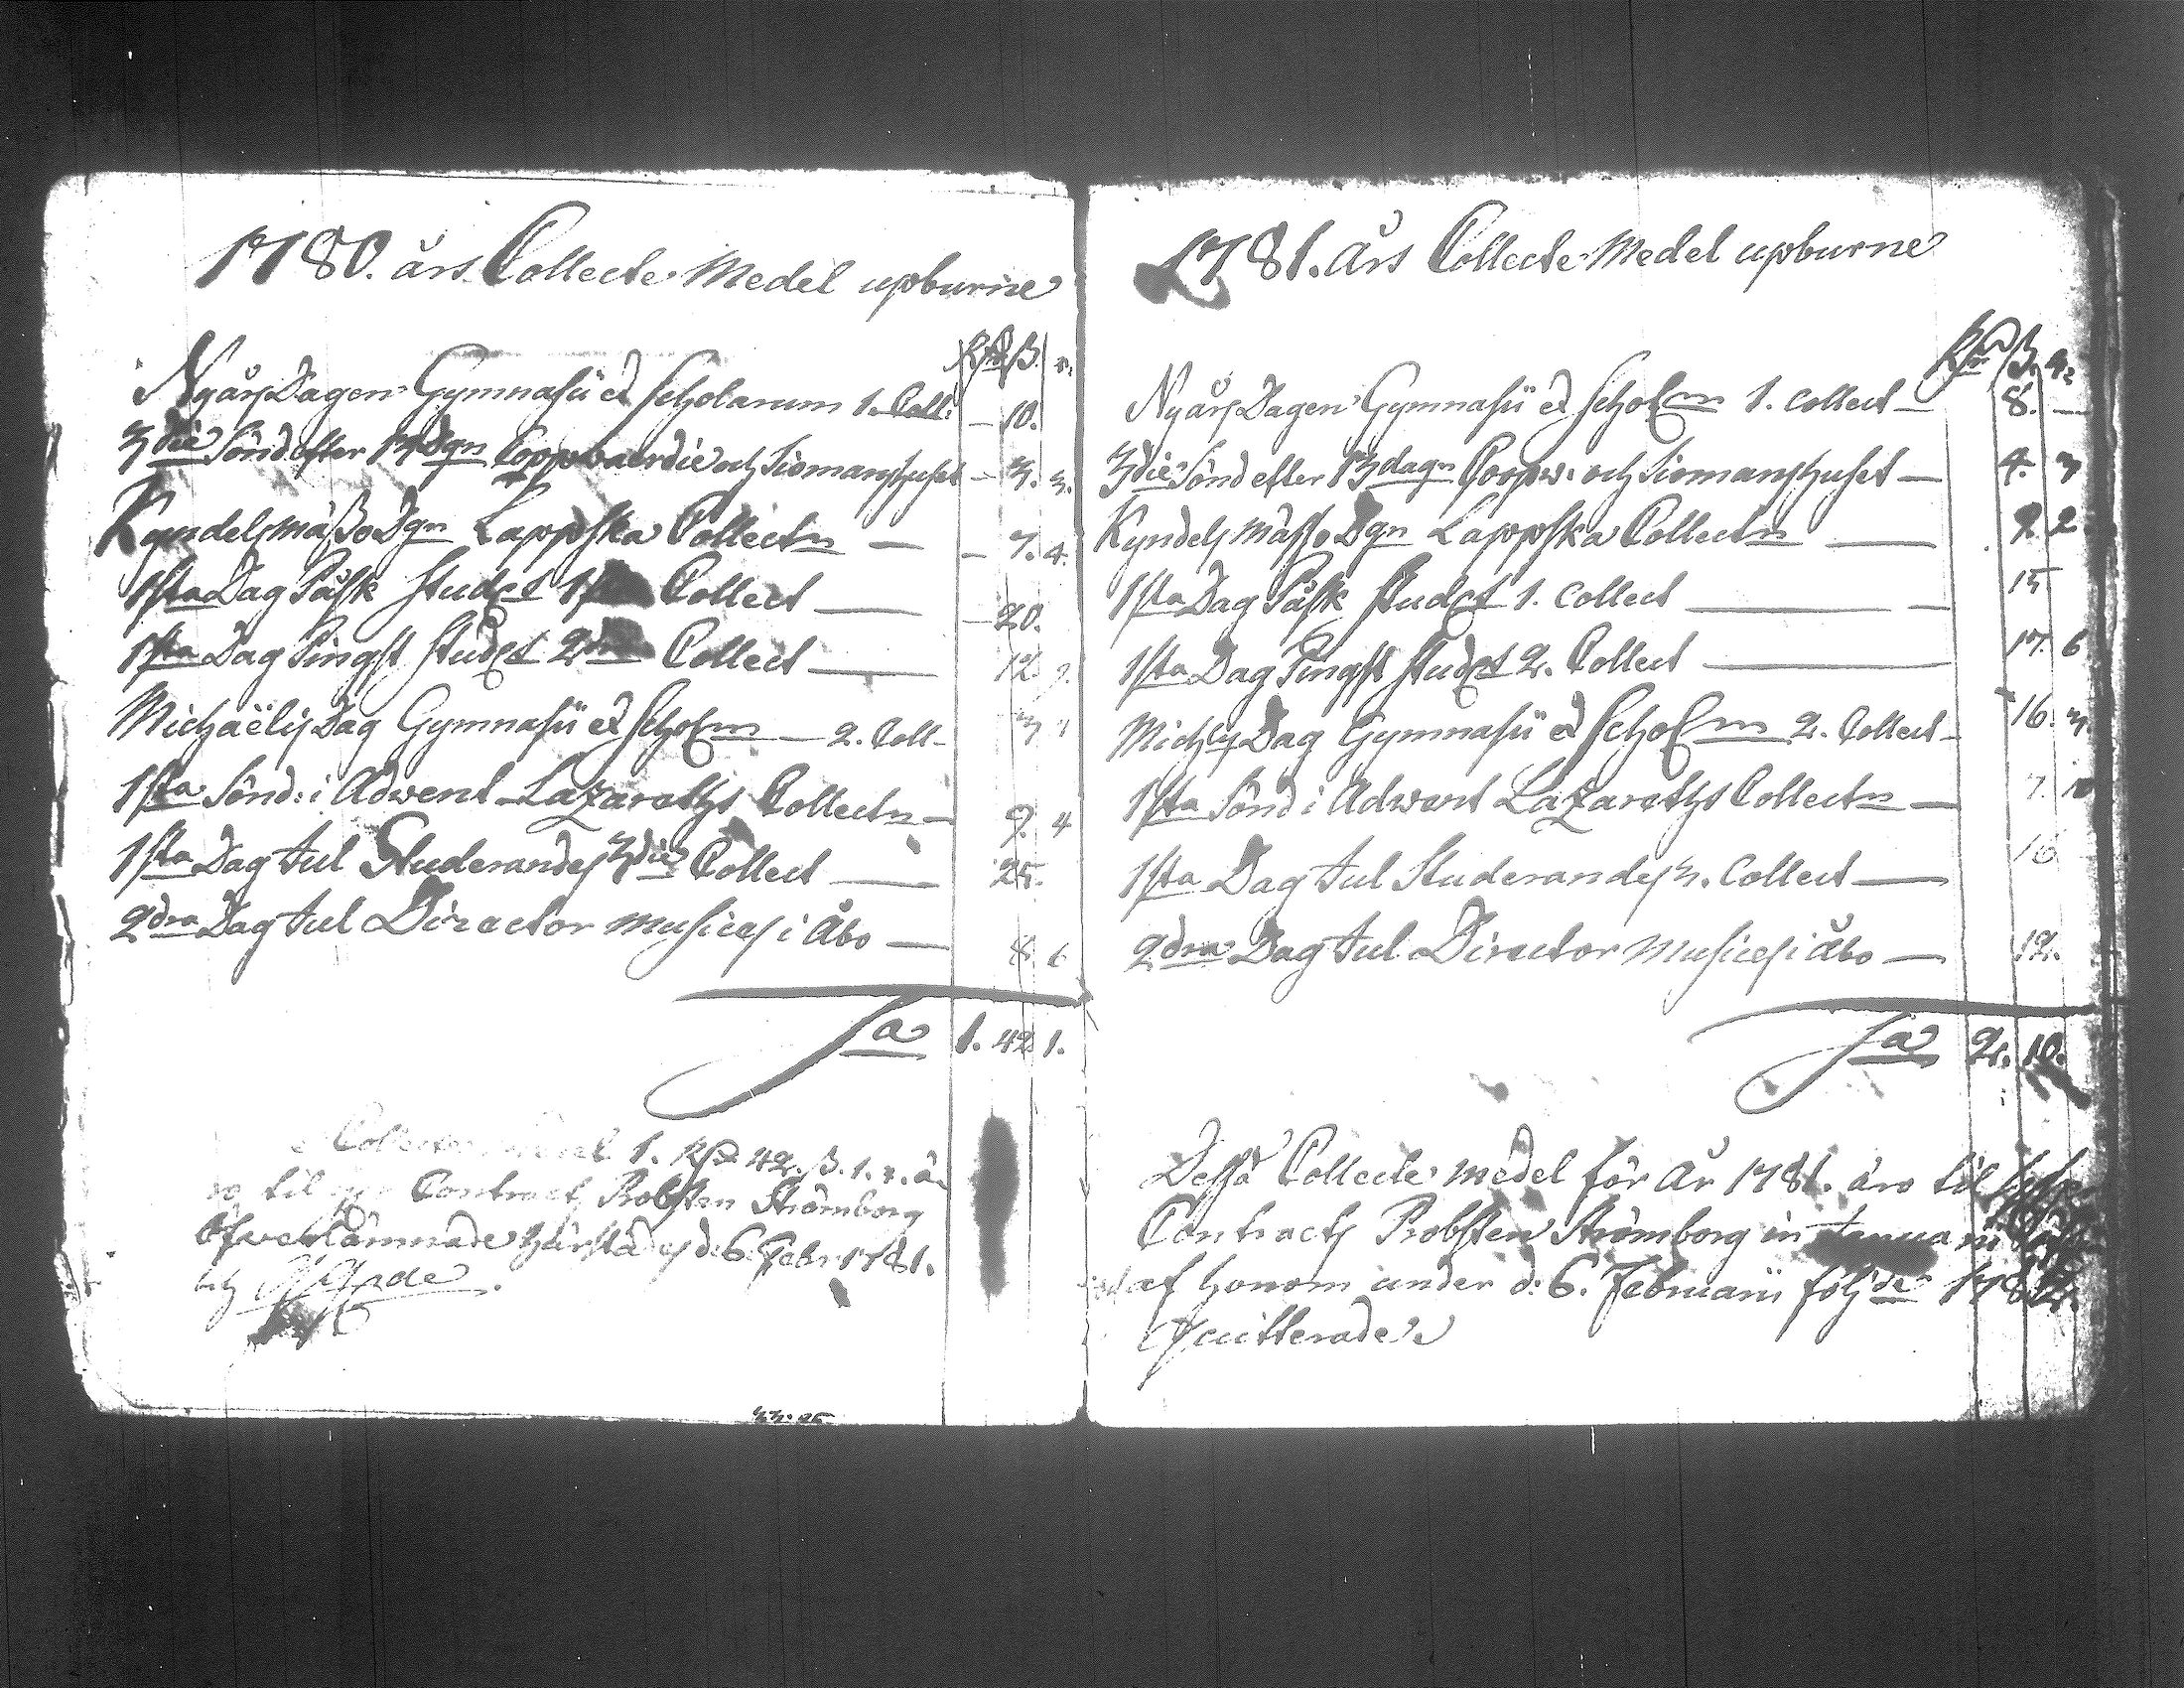 1780. års Collecte Medel upburne
Rd ß. r.
NyårsDagen Gymnasii et Scholarum 1. Coll: — 10.
3die Sönd efter 13 Dgn Coopvaerdie och Siömanshuset — 3. 3.
KyndelsmässoDgn Lappska Collectn — 7. 4.
1sta Dag Påsk Studes 1sta Collect — 20.
1sta Dag Pingst Studes 2dra Collect — 12
Michaëlis Dag Gymnasii et Scholm — 2. Coll-
1sta Sönd: i Advent Lazareths Collectn — 9. 4
1sta Dag Jul Studerandes 3die Collect — 25.
2dra Dag Jul Director musices i Åbo — 8 6
Sa 1. 42 1.
Collecte Medel 1. Rd 42. ß. 1. r. ä
ro til Contracts Probsten Strömborg
öfverlämnade härstädes d: 6 Febr 1781.
1781. års Collecte Medel upburne
Rd ß. r.
NyårsDagen Gymnasii et Scholm 1. collect — 8. —
3die Sönd efter 13 dagn Coopv: och Siömanshuset — 4. 3
Kyndelsmässo Dgn Lappska Collectn — 9 2
1sta Dag Påsk Studes 1. Collect — 15
1sta Dag Pingst Studes 2. Collect — 17. 6
Michls Dag Gymnasii et Scholm 2. Collect — 16. 3.
1sta Sönd i Advent Lazareths Collectn — 7. 10
1sta Dag Jul Studerandes 3. Collect — 16
2dra Dag Jul Director Musices i Åbo — 12.
Sa 2. 10.
Dessa Collecte medel för År 1781. äro til
Contracts Probsten Strömborg in Januarii
af honom under d: 6. Februarii följde 1782.
quitterade